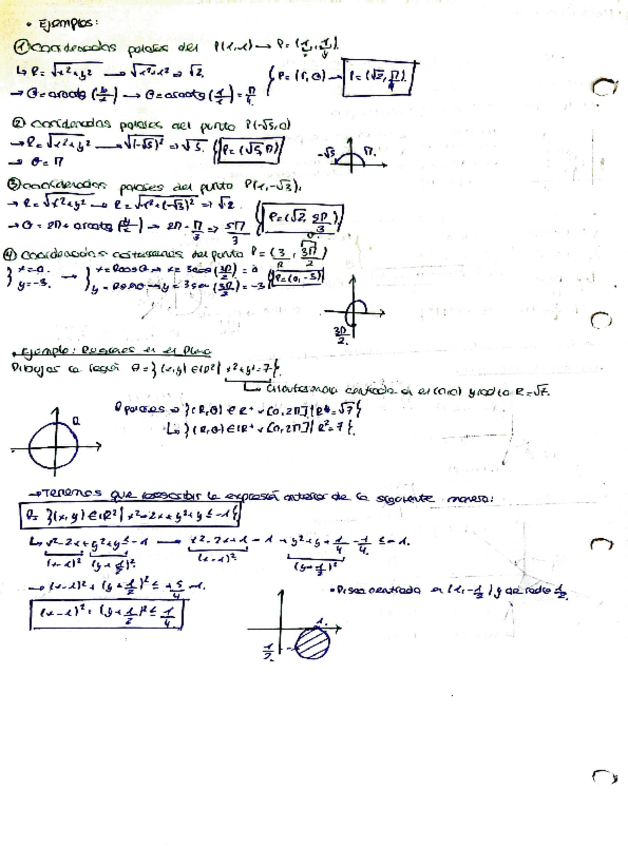 • Ejemplos:
① Coordenadas polares del P(1,1) → P = (1, 1).
x y
↳ R = √x²+y² → √1²+1² ⇒ √2.
→ θ = arcotg (y/x) → θ = arcotg (1/1) = π/4.
{ P = (r, θ) → P = (√2, π/4).
② coordenadas polares del punto P(-√5, 0)
→ R = √x²+y² → √(-√5)² ⇒ √5. { P = (√5, π)
→ θ = π
-√5 π.
③ coordenadas polares del punto P(1, -√3).
→ R = √x²+y² → R = √1²+(-√3)² ⇒ √2.
→ θ = 2π + arcotg (y/x) → 2π - π/3 ⇒ 5π/3 { P = (√2, 5π/3)
θ.
④ Coordenadas cartesianas del punto P = (3, 3π/2)
R
} x = 0. → } x = R cos θ → x = 3 cos (3π/2) = 0
} y = -3. } y = R sen θ → y = 3 sen (3π/2) = -3 { P = (0, -3)
3π/2.
• Ejemplo: Regiones en el Plano
Dibujar la región A = } (x,y) ∈ ℝ² | x²+y² = 7 {.
↳ Circunferencia centrada en el (0,0) y radio R = √7.
A polares ⇒ } (R,θ) ∈ ℝ⁺ × [0,2π] | R = √7 {
↳ } (R,θ) ∈ ℝ⁺ × [0,2π] | R² = 7 {.
→ Tenemos que reescribir la expresión anterior de la siguiente manera:
A = } (x,y) ∈ ℝ² | x²-2x+y²+y ≤ -1 {
↳ x²-2x+y²+y ≤ -1 → x²-2x+1-1+y²+y+1/4-1/4 ≤ -1.
(x-1)² (y+1/2)². (x-1)². (y+1/2)².
→ (x-1)²+(y+1/2)² ≤ +5/4 -1.
(x-1)²+(y+1/2)² ≤ 1/4.
• Disco centrado en (1, -1/2) y de radio 1/2.
1.
1/2.